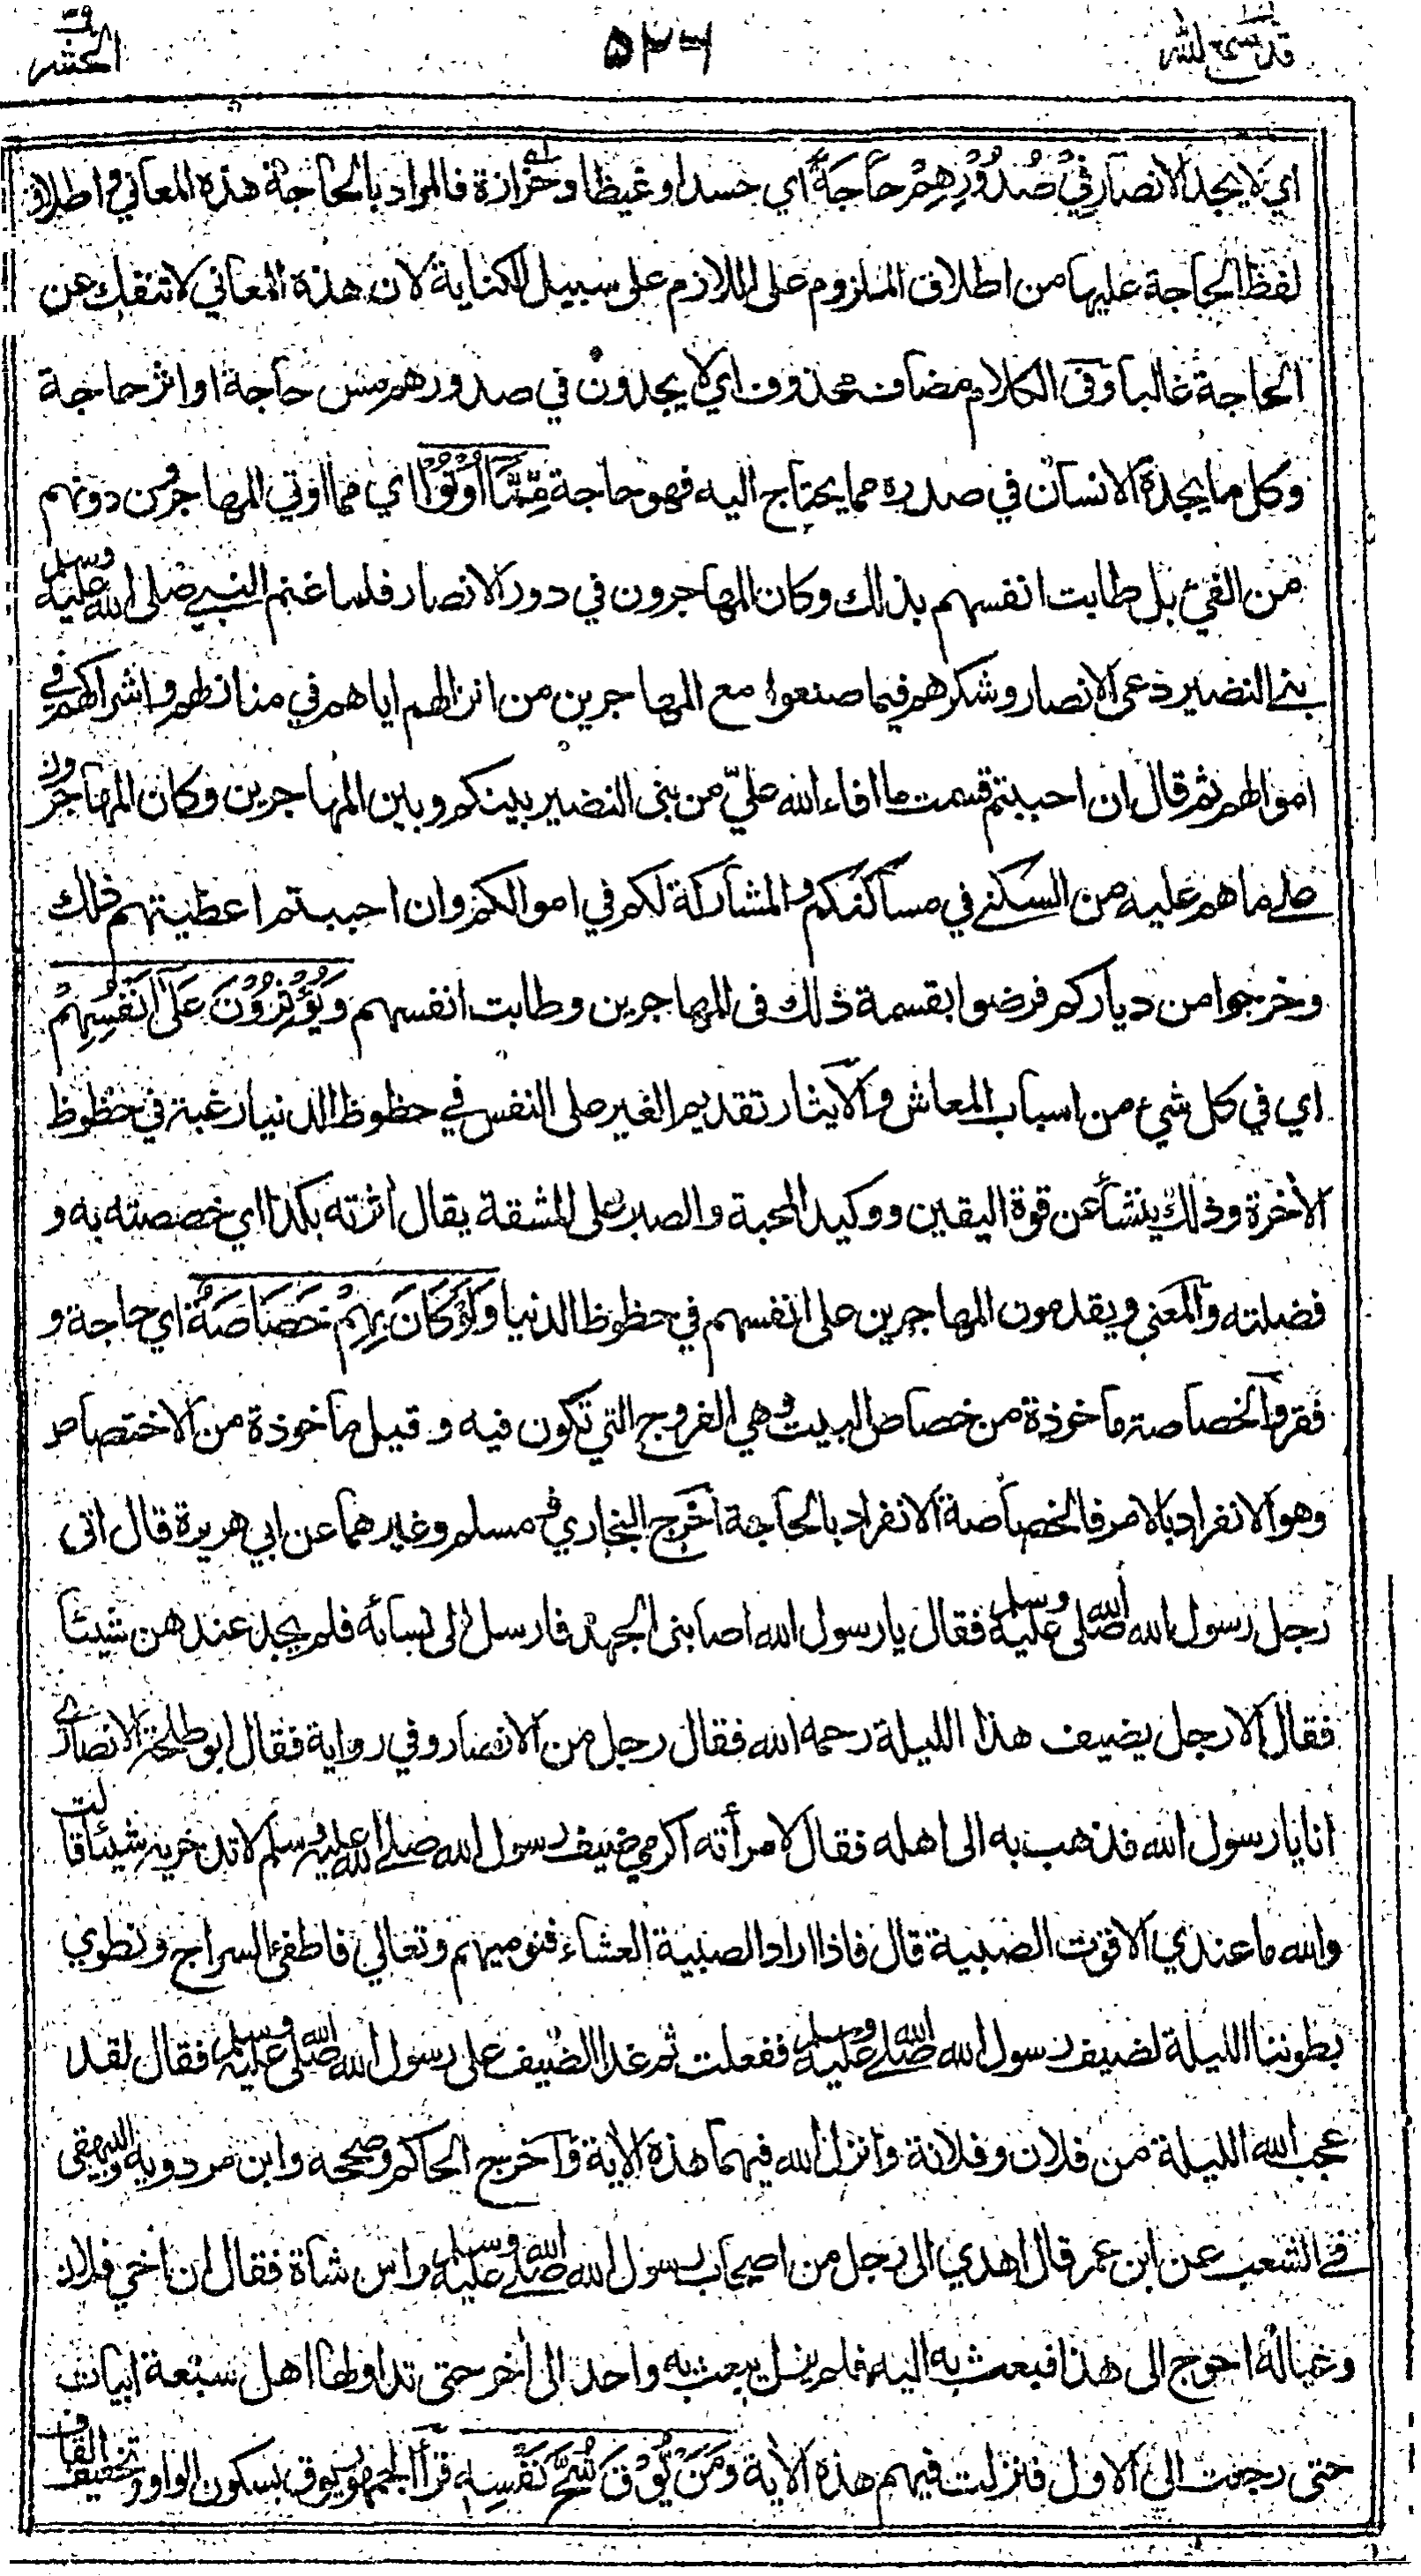 قد سمع الله ٥٢٦ الحشر
اي لا يجد الانصار فِيْ صُدُوْرِهِمْ حَاجَةً اي حسدا وغيظا وحزازة فالمراد بالحاجة هذه المعاني واطلاق
لفظ الحاجة عليها من اطلاق الملزوم على اللازم على سبيل الكناية لان هذه المعاني لا تنفك عن
الحاجة غالبا وفى الكلام مضاف محذوف اي لا يجدون في صدورهم مس حاجة او اثر حاجة
وكل ما يجده الانسان في صدره مما يحتاج اليه فهو حاجة مِّمَّا اُوْتُوْا اي مما اوتي المهاجرون دونهم
من الفيء بل طابت انفسهم بذلك وكان المهاجرون في دور الانصار فلما غنم النبي صلى الله عليه وسلم
بني النضير دعى الانصار وشكرهم فيما صنعوا مع المهاجرين من انزالهم اياهم في منازلهم واشراكهم في
اموالهم ثم قال ان احببتم قسمت ما افاء الله عليّ من بنى النضير بينكم وبين المهاجرين وكان المهاجرون
على ما هم عليه من السكنى في مساكنكم والمشاركة لكم في اموالكم وان احببتم اعطيتهم ذلك
وخرجوا من دياركم فرضوا بقسمة ذلك فى المهاجرين وطابت انفسهم وَيُؤْثِرُوْنَ عَلٰى اَنْفُسِهِمْ
اي في كل شيء من اسباب المعاش والايثار تقديم الغير على النفس في حظوظ الدنيا رغبة في حظوظ
الأخرة وذلك ينشأ عن قوة اليقين ووكيد المحبة والصبر على المشقة يقال أثرته بكذا اي خصصته به و
فضلته والمعنى ويقدمون المهاجرين على انفسهم في حظوظ الدنيا وَلَوْ كَانَ بِهِمْ خَصَاصَةٌ اي حاجة و
فقر والخصاصة ماخوذة من خصاص البيت وهي الفروج التي تكون فيه وقيل ماخوذة من الاختصاص
وهو الانفراد بالامر فالخصاصة الانفراد بالحاجة اخرج البخاري ومسلم وغيرهما عن ابي هريرة قال اتى
رجل رسول الله صلى الله عليه وسلم فقال يا رسول الله اصابنى الجهد فارسل الى نسائه فلم يجد عندهن شيئا
فقال الا رجل يضيف هذا الليلة رحمه الله فقال رجل من الانصار وفي رواية فقال ابو طلحة الانصاري
انا يا رسول الله فذهب به الى اهله فقال لامرأته اكرمي ضيف رسول الله صلى الله عليه وسلم لا تدخريه شيئا قالت
والله ما عندي الا قوت الصبية قال فاذا اراد الصبية العشاء فنوميهم وتعالي فاطفئ السراج ونطوي
بطوننا الليلة لضيف رسول الله صلى الله عليه وسلم ففعلت ثم غدا الضيف على رسول الله صلى الله عليه وسلم فقال لقد
عجب الله الليلة من فلان وفلانة وانزل الله فيهما هذه الأية وأخرج الحاكم وصححه وابن مردويه والبيهقي
في الشعب عن ابن عمر قال اهدي الى رجل من اصحاب رسول الله صلى الله عليه وسلم راس شاة فقال ان اخي فلان
وعياله احوج الى هذا فبعث به اليه فلم يزل يبعث به واحد الى أخر حتى تداولها اهل سبعة ابيات
حتى رجعت الى الاول فنزلت فيهم هذه الأية وَمَنْ يُّوْقَ شُحَّ نَفْسِهٖ قرأ الجمهور يوق بسكون الواو وتخفيف القاف